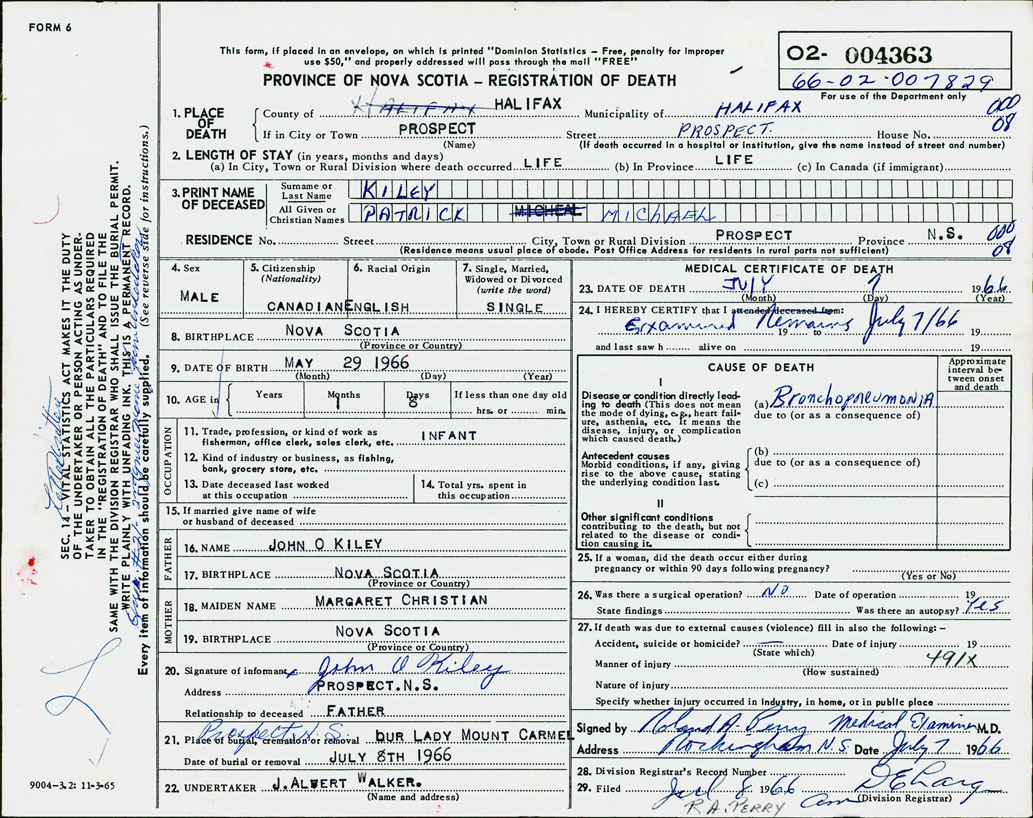 FORM 6
This form, if placed in an envelope, on which is printed "Dominion Statistics – Free, penalty for improper
use $50," and properly addressed will pass through the mail "FREE"
PROVINCE OF NOVA SCOTIA – REGISTRATION OF DEATH
O2- 004363
66-02-007829
For use of the Department only
1. PLACE OF DEATH
County of HALIFAX HALIFAX Municipality of HALIFAX 000
If in City or Town PROSPECT Street PROSPECT. House No. 08
(Name) (If death occurred in a hospital or institution, give the name instead of street and number)
2. LENGTH OF STAY (in years, months and days)
(a) In City, Town or Rural Division where death occurred LIFE (b) In Province LIFE (c) In Canada (if immigrant)
3. PRINT NAME OF DECEASED
Surname or Last Name KILEY
All Given or Christian Names PATRICK MICHEAL MICHAEL
RESIDENCE No. Street City, Town or Rural Division PROSPECT Province N.S. 000
(Residence means usual place of abode. Post Office Address for residents in rural parts not sufficient) 08
4. Sex
MALE
5. Citizenship
(Nationality)
CANADIAN
6. Racial Origin
ENGLISH
7. Single, Married,
Widowed or Divorced
(write the word)
SINGLE
8. BIRTHPLACE NOVA SCOTIA
(Province or Country)
9. DATE OF BIRTH MAY 29 1966
(Month) (Day) (Year)
10. AGE in Years Months Days If less than one day old
1 8 hrs. or min.
OCCUPATION
11. Trade, profession, or kind of work as
fisherman, office clerk, sales clerk, etc. INFANT
12. Kind of industry or business, as fishing,
bank, grocery store, etc.
13. Date deceased last worked
at this occupation
14. Total yrs. spent in
this occupation
15. If married give name of wife
or husband of deceased
FATHER
16. NAME JOHN O KILEY
17. BIRTHPLACE NOVA SCOTIA
(Province or Country)
MOTHER
18. MAIDEN NAME MARGARET CHRISTIAN
19. BIRTHPLACE NOVA SCOTIA
(Province or Country)
20. Signature of informant x John O Kiley
Address PROSPECT.N.S.
Relationship to deceased FATHER
Prospect N.S.
21. Place of burial, cremation or removal OUR LADY MOUNT CARMEL
Date of burial or removal JULY 8TH 1966
22. UNDERTAKER J.ALBERT WALKER.
(Name and address)
MEDICAL CERTIFICATE OF DEATH
23. DATE OF DEATH JULY 7 1966
(Month) (Day) (Year)
24. I HEREBY CERTIFY that I attended deceased from:
Examined Remains July 7/66
19 to 19
and last saw h alive on 19
CAUSE OF DEATH
Approximate
interval be-
tween onset
and death
I
Disease or condition directly lead-
ing to death (This does not mean
the mode of dying, e.g., heart fail-
ure, asthenia, etc. It means the
disease, injury, or complication
which caused death.)
(a) Bronchopneumonia
due to (or as a consequence of)
Antecedent causes
Morbid conditions, if any, giving
rise to the above cause, stating
the underlying condition last.
(b)
due to (or as a consequence of)
(c)
II
Other significant conditions
contributing to the death, but not
related to the disease or condi-
tion causing it.
25. If a woman, did the death occur either during
pregnancy or within 90 days following pregnancy?
(Yes or No)
26. Was there a surgical operation? NO Date of operation 19
State findings Was there an autopsy? Yes
27. If death was due to external causes (violence) fill in also the following: –
Accident, suicide or homicide? Date of injury 19
(State which) 491X
Manner of injury
(How sustained)
Nature of injury
Specify whether injury occurred in Industry, in home, or in public place
Signed by Roland A. Perry Medical Examiner M.D.
Address Rockingham N.S. Date July 7 1966
28. Division Registrar's Record Number
29. Filed Jul 8 1966
(Division Registrar)
R A. PERRY
SEC. 14 – VITAL STATISTICS ACT MAKES IT THE DUTY
OF THE UNDERTAKER OR PERSON ACTING AS UNDER-
TAKER TO OBTAIN ALL THE PARTICULARS REQUIRED
IN THE "REGISTRATION OF DEATH" AND TO FILE THE
SAME WITH THE DIVISION REGISTRAR WHO SHALL ISSUE THE BURIAL PERMIT.
WRITE PLAINLY WITH UNFADING INK. THIS IS A PERMANENT RECORD.
Every item of information should be carefully supplied. (See reverse side for instructions.)
9004–3.2: 11-3-65